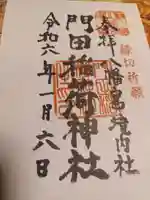 奉拝
八幡宮境内社
縁切祈願
門田稲荷神社
令和六年一月六日